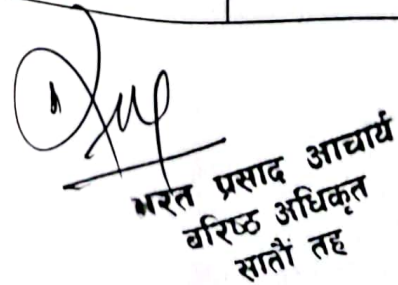 भरत प्रसाद आचार्य
वरिष्ठ अधिकृत
सातौं तह